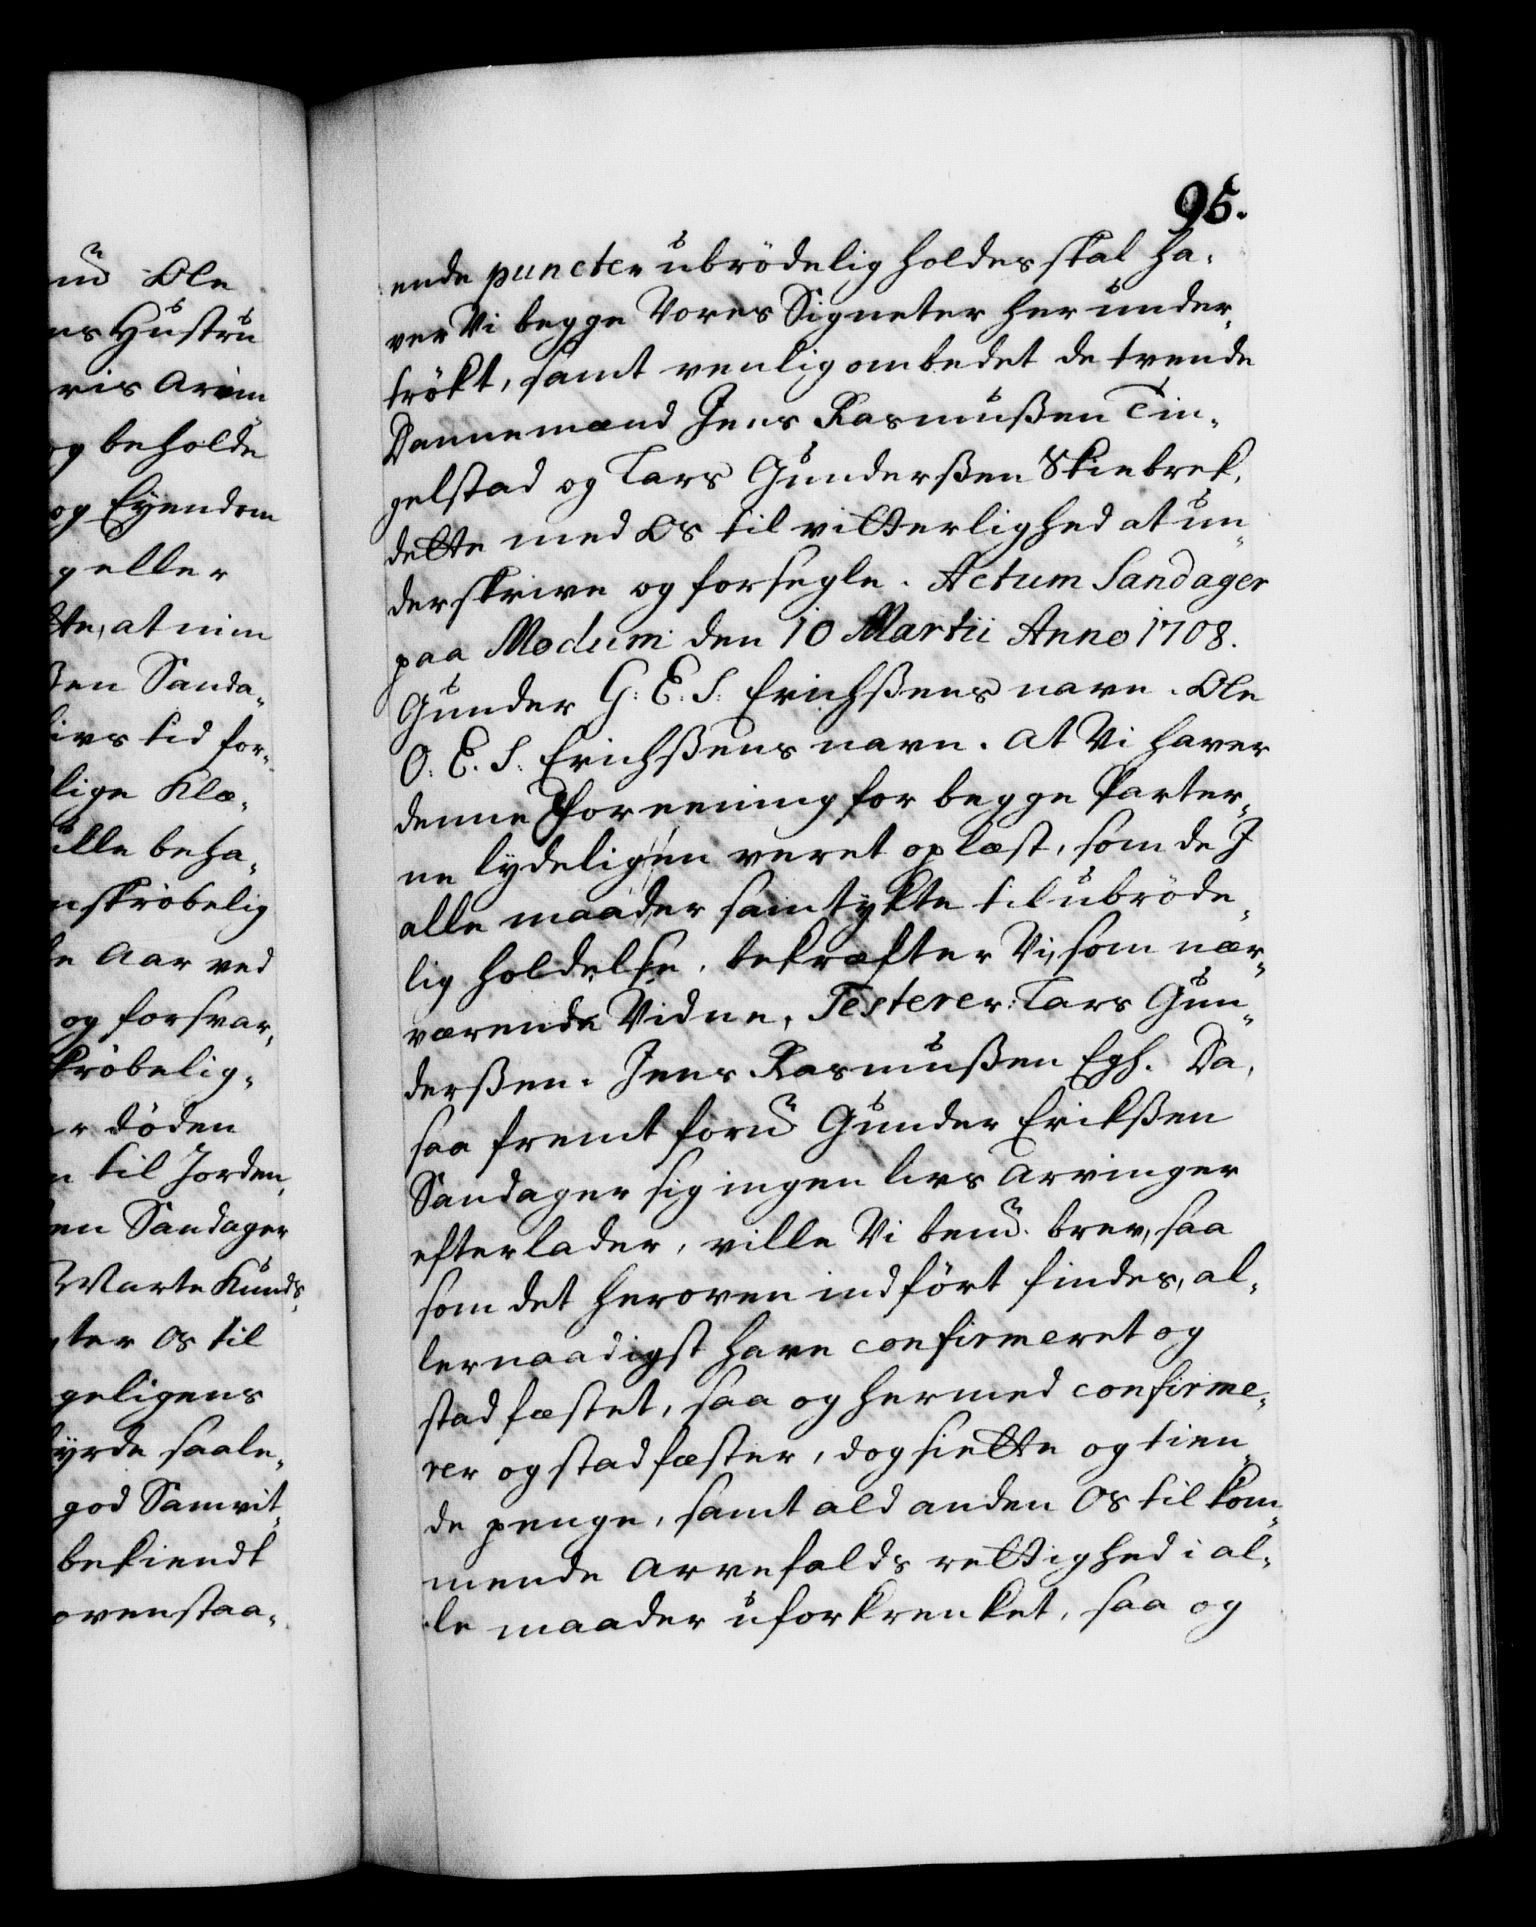 95.
ende puncter ubrödelig holdes skal ha-
ver Vi begge Vores Signeter her under-
trökt, samt venlig ombedet de tvende
Dannemænd Jens Rasmußen Tin-
gelstad og Lars Gunderßen Skiebrek,
dette med Os til vitterlighed at un-
derskrive og forsegle. Actum Sandager
paa Modum den 10 Martii Anno 1708.
Gunder G: E: S: Erichßens navn. Ole
O: E: S: Erichßens navn. At Vi haver
denne Foreening for begge Parter-
ne lydeligen veret oplæst, som de J
alle maader samtykte til ubröde-
lig holdelse, bekræfter Vi, som nær-
værende Vidne, Testerer: Lars Gun-
derßen. Jens Rasmußen Egh. Da,
saa fremt foru Gunder Erikßen
Sandager sig ingen livs Arvinger
efterlader, ville Vi bem. brev, saa
som det heroven indfört findes, al-
lernaadigst have confirmeret og
stadfæstet, saa og hermed confirme-
rer og stadfæster, dog siette og tien-
de penge, samt ald anden Os tilkom-
mende Arvefalds rettighed i al-
le maader uforkrenket, saa og
ud Ole
ns Hustru
og beholde
og Eyendom
eller
tte, at min
ßen Sanda-
livs tid for-
lige Klæ-
ville beha-
skröbelig
e Aar ved
og forsvar,
kröbelig-
r döden
n til Jorden,
en Sandager
Marte Kunds-
ter Os til
geligens
yrde saale-
god Samvit-
bekiendt
ovenstaa-